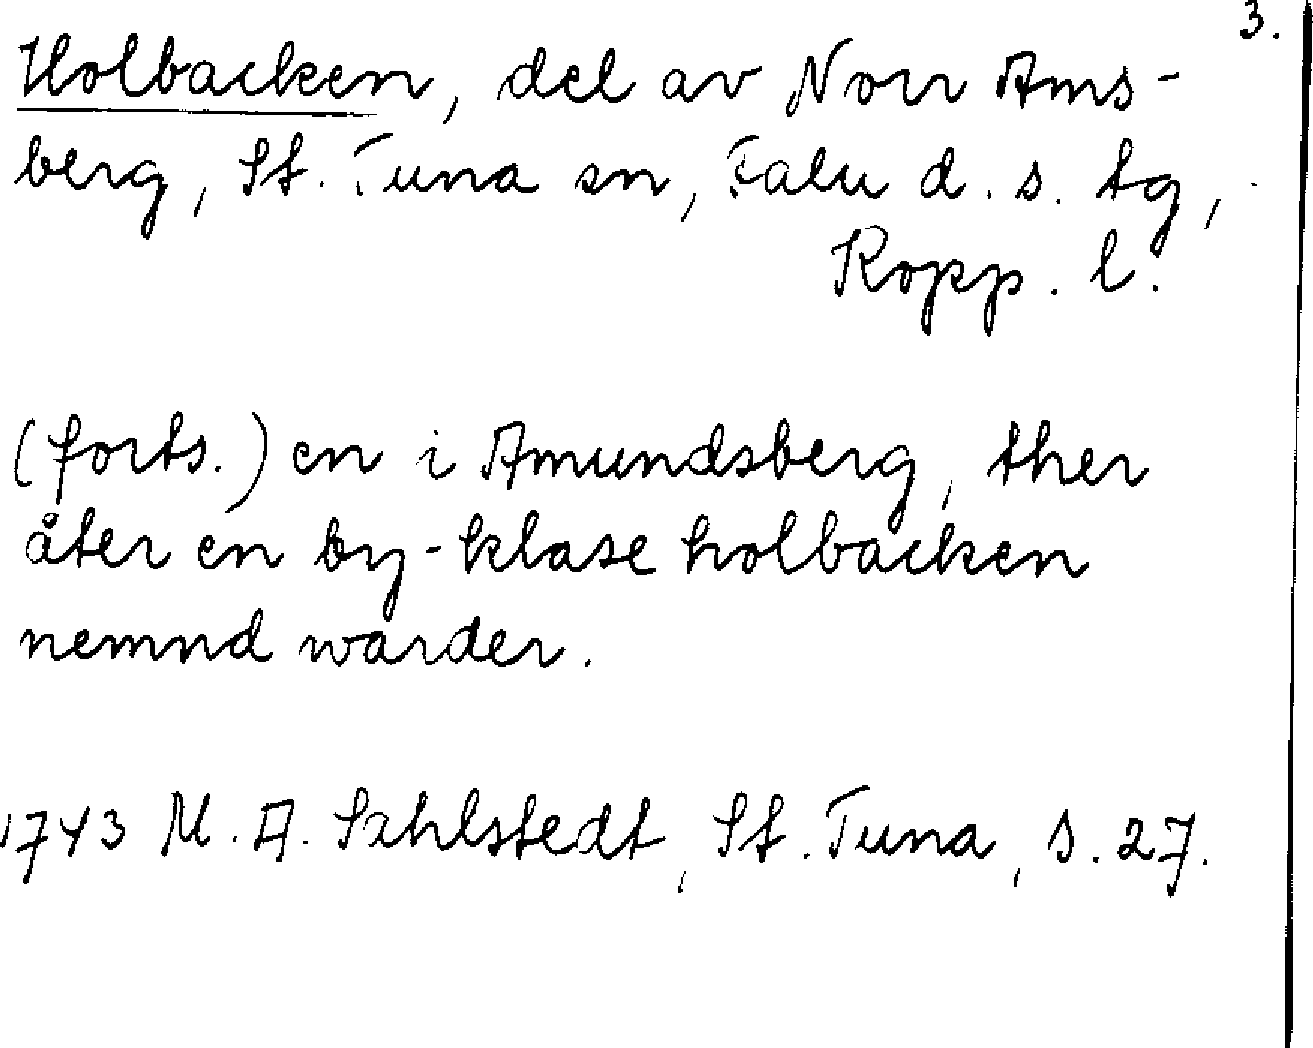 3.
Holbacken, del av Norr Ams-
berg, St. Tuna sn, Falu d. s. tg,
Kopp. l.
(forts.) en i Amundsberg, ther
åter en by-klase holbacken
nemnd warder.
1743 M. A. Sahlstedt, St. Tuna, s. 27.